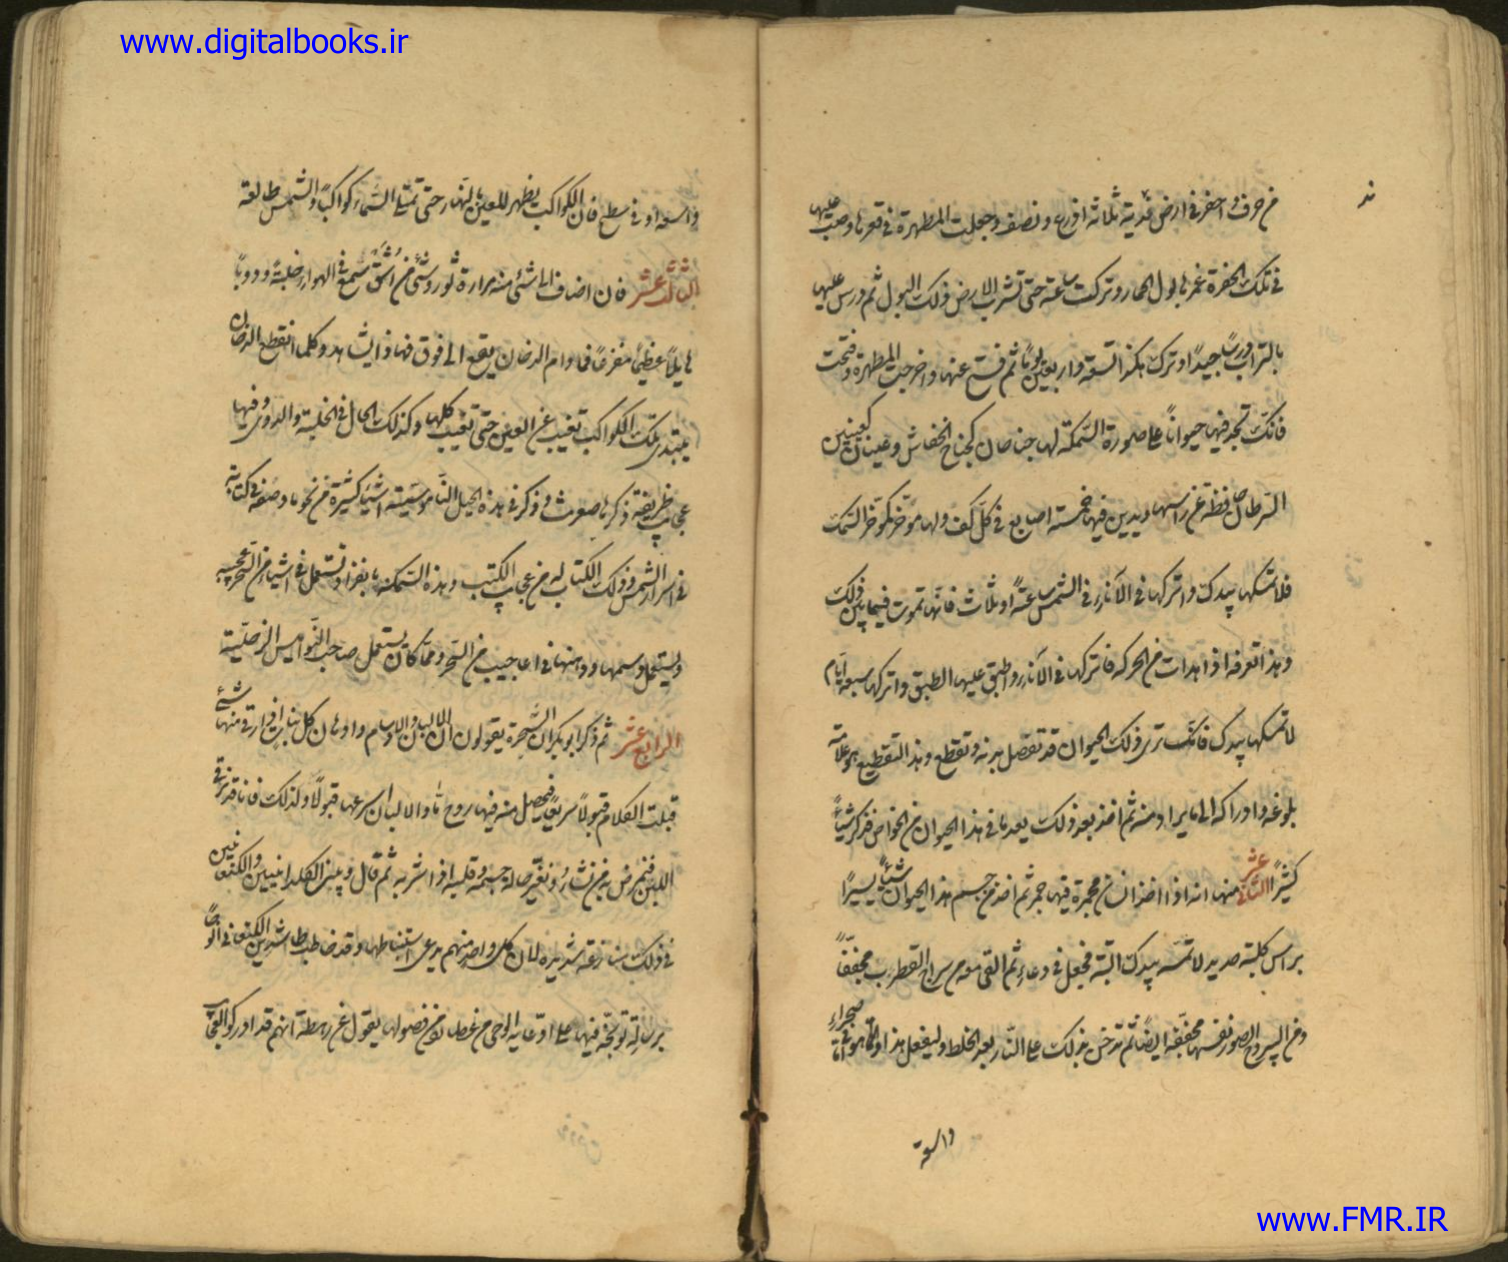 www.digitalbooks.ir
من خزف واحفر في ارض ندية ثلاثة اذرع ونصف وجعلت المطهرة في قعرها وصب عليها
في تلك الحفرة غمرها بول الحمار وتركت ساعة حتى تشرب الارض ذلك البول ثم درس عليها
بالتراب درسا جيدا وترك هكذا تسعة واربعين يوما ثم فتح عنها واخرجت المطهرة وفتحت
فانك تجد فيها حيوانا على صورة السمكة لها جناحان كجناح الخفاش وعينان كعينين
السرطان فظة عن راسها ويدين فيها خمسة اصابع في كل كف ولها مؤخر كمؤخر السمك
فلا تمسكها بيدك واتركها في الاناء في الشمس ساعة او ثلاث فانها تموت فيما بين ذلك
وهذا تعرفه اذا هدات من الحركة فاتركها في الاناء واطبق عليها الطبق واتركها سبعة ايام
لا تمسكها بيدك فانك ترى ذلك الحيوان قد تفصل بدنه وتقطع وهذا التقطيع هو علامة
بلوغه وادراكه الى ما يراد منه ثم اخذ بعد ذلك يعد ما في هذا الحيوان من الخواص فذكر شيئا
كثيرا الثاني عشر منها انه اذا اخذ انسان مجمرة فيها جمر ثم اخذ من جسم هذا الحيوان شيئا يسيرا
براس كلبة حديد لا تمسه بيدك البتة فجعل في وعاء ثم القى معه من سراج القطرب مجففا
ومن اليبروح الصورة نفسها مجففة ايضا ثم تدخن بذلك على النار بعد الخلط وليفعل هذا وانما هو في صحراء
واسعة
واسعة او في سطح فان الكواكب يظهر للعين بالنهار حتى تمتلئ السماء كواكبا والشمس طالعة
الثالث عشر فان اضاف الى شئ منه مرارة ثور وشئ من اشق سمع في الهواء جلبة ودويا
هايلا عظيما مفزعا فما دام الدخان يقع الى فوق فهذا يشاهد وكلما انقطع الدخان
يبتدى تلك الكواكب تغيب عن العين حتى تغيب كلها وكذلك الحال في الجلبة والدوى وفيها
عجايب ظريفة ذكرها صغريث وذكر في هذه الحيل الناموسية اشياء كثيرة من نحو ما وصفه في كتابه
في اسرار الشمس وذلك الكتاب له من عجايب الكتب وهذه السمكة بانفرادها تستعمل في اشياء من السحر عجيبة
ويستعمل وسمها ودهنها في اعاجيب من السحر ومما كان يستعمل صاحب النواميس الزحلية
الرابع عشر ثم ذكر ابو بكر ان السحرة يقولون ان الالبان والادهان كل بنات اذا رقى منها شئ
قبلت الكلام قبولا سريعا فيحصل منه فيها روح ما والالبان اسرعها قبولا ولذلك فانا قد نرقى
اللبن فنمرض به من نشاء ونغير حاله جسمه وقلبه اذا شربه ثم قال وبين الكلدانيين والكنعانيين
في ذلك منازعة شديدة لان كل واحد منهم يدعى استنباطها وقد خاطب طامثرى الكنعاني انوحا
برسالة توبخه فيها على ادعائه الوحى من فصولها يقول عن رهطه انهم قد ادركوا العجايب
www.FMR.IR